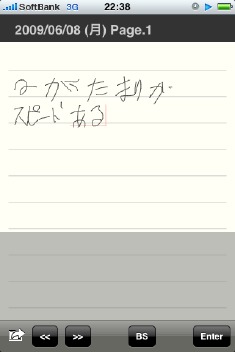 SoftBank 3G 22:38
2009/06/08 (月) Page.1
スピードある
<< >> BS Enter